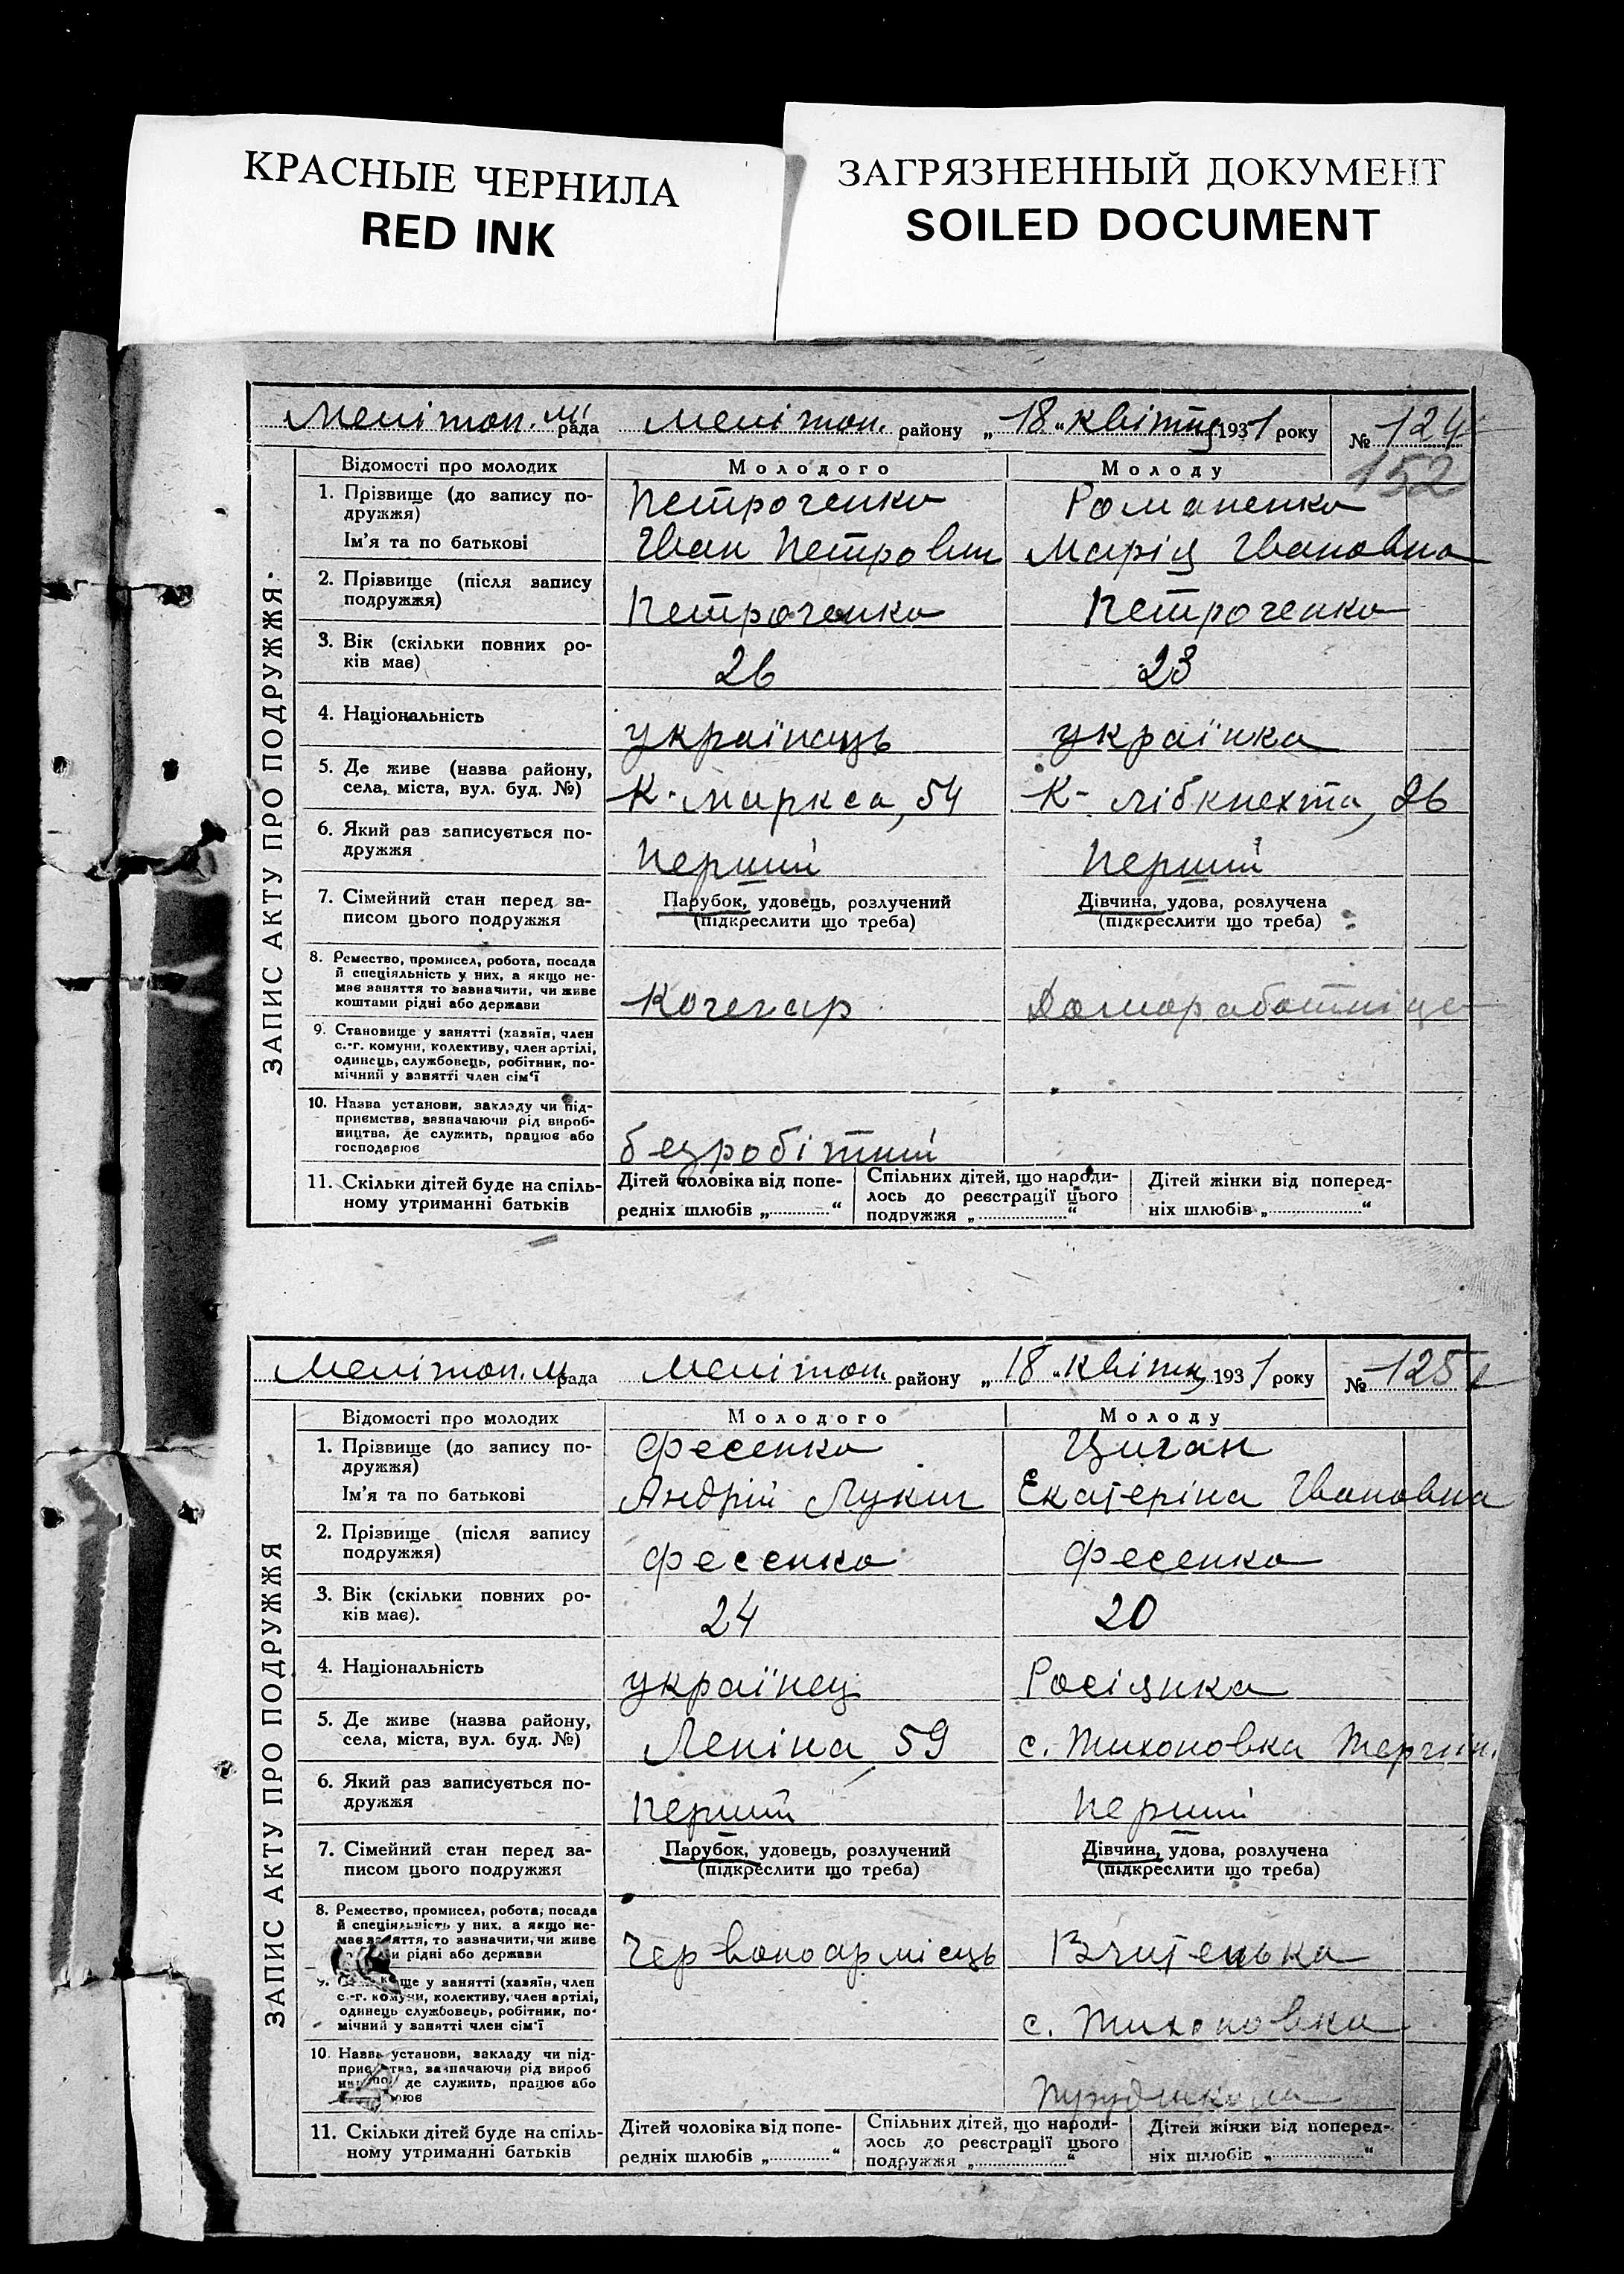 КРАСНЫЕ ЧЕРНИЛА
RED INK
ЗАГРЯЗНЕННЫЙ ДОКУМЕНТ
SOILED DOCUMENT
ЗАПИС АКТУ ПРО ПОДРУЖЖЯ
Мелітоп. мі рада Мелітоп. району „18“ квітня 1931 року № 124
152
Відомості про молодих Молодого Молоду
1. Прізвище (до запису по- Петроченко Романенко
дружжя)
Ім'я та по батькові Іван Петрович Марія Івановна
2. Прізвище (після запису
подружжя) Петроченко Петроченко
3. Вік (скільки повних ро-
ків має) 26 23
4. Національність українець українка
5. Де живе (назва району,
села, міста, вул. буд. №) К-Маркса, 54 К-Лібкнехта, 26
6. Який раз записується по-
дружжя перший перший
7. Сімейний стан перед за- Парубок, удовець, розлучений Дівчина, удова, розлучена
писом цього подружжя (підкреслити що треба) (підкреслити що треба)
8. Ремество, промисел, робота, посада
й спеціяльність у них, а якщо не-
має заняття то зазначити, чи живе
коштами рідні або держави Кочегар Доморабатніце
9. Становище у занятті (хазяїн, член
с.-г. комуни, колективу, член артілі,
одинець, службовець, робітник, по-
мічний у занятті член сім'ї
10. Назва установи, закладу чи під-
приємства, зазначаючи рід вироб-
ництва, де служить, працює або
господарює безробітний
11. Скільки дітей буде на спіль- Дітей чоловіка від попе- Спільних дітей, що народи- Дітей жінки від поперед-
ному утриманні батьків редніх шлюбів „ “ лось до реєстрації цього ніх шлюбів „ “
подружжя „ “
ЗАПИС АКТУ ПРО ПОДРУЖЖЯ
Мелітоп. м рада Мелітоп. району „18“ квітня 1931 року № 125
Відомості про молодих Молодого Молоду
1. Прізвище (до запису по- Фесенко Циган
дружжя)
Ім'я та по батькові Андрій Лукич Екатеріна Івановна
2. Прізвище (після запису
подружжя) Фесенко Фесенко
3. Вік (скільки повних ро-
ків має). 24 20
4. Національність українец Росіянка
5. Де живе (назва району,
села, міста, вул. буд. №) Леніна 59 с. Тихоновка
6. Який раз записується по-
дружжя перший перший
7. Сімейний стан перед за- Парубок, удовець, розлучений Дівчина, удова, розлучена
писом цього подружжя (підкреслити що треба) (підкреслити що треба)
8. Ремество, промисел, робота, посада
й спеціяльність у них, а якщо не-
має заняття, то зазначити, чи живе
рідні або держави Червоноармієць Вчителька
9. у занятті (хазяїн, член
с.-г. комуни, колективу, член артілі,
одинець службовець, робітник, по-
мічний у занятті член сім'ї с. Тихоновка
10. Назва установи, закладу чи під-
приємства, зазначаючи рід вироб
де служить, працює або
11. Скільки дітей буде на спіль- Дітей чоловіка від попе- Спільних дітей, що народи- Дітей жінки від поперед-
ному утриманні батьків редніх шлюбів „ “ лось до реєстрації цього ніх шлюбів „ “
подружжя „ “